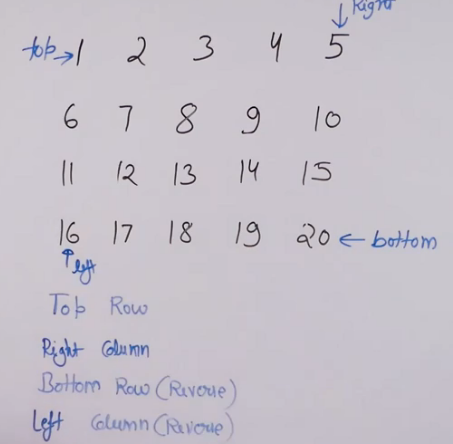 Right
top → 1 2 3 4 5
6 7 8 9 10
11 12 13 14 15
16 17 18 19 20 ← bottom
left
Top Row
Right Column
Bottom Row (Reverse)
Left Column (Reverse)